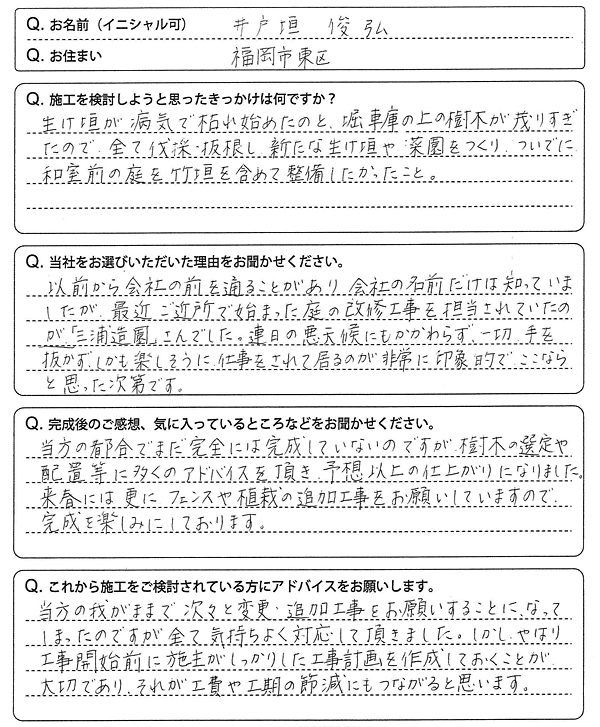 Q. お名前（イニシャル可） 井戸垣 俊弘
Q. お住まい 福岡市東区
Q. 施工を検討しようと思ったきっかけは何ですか？
生け垣が病気で枯れ始めたのと、堀車庫の上の樹木が茂りすぎ
たので、全て伐採・抜根し、新たな生け垣や、菜園をつくり、ついでに
和室前の庭を竹垣を含めて整備したかったこと。
Q. 当社をお選びいただいた理由をお聞かせください。
以前から会社の前を通ることがあり、会社の名前だけは知っていま
したが、最近ご近所で始まった庭の改修工事を担当されていたの
が「三浦造園」さんでした。連日の悪天候にもかかわらず、一切、手を
抜かず、しかも楽しそうに仕事をされて居るのが非常に印象的で、ここなら
と思った次第です。
Q. 完成後のご感想、気に入っているところなどをお聞かせください。
当方の都合でまだ完全には完成していないのですが、樹木の選定や
配置等に多くのアドバイスを頂き、予想以上の仕上がりになりました。
来春には更に、フェンスや植栽の追加工事をお願いしていますので、
完成を楽しみにしております。
Q. これから施工をご検討されている方にアドバイスをお願いします。
当方の我がままで、次々と変更・追加工事をお願いすることになって
しまったのですが全て気持ちよく対応して頂きました。しかし、やはり
工事開始前に施主がしっかりした工事計画を作成しておくことが
大切であり、それが工費や工期の節減にもつながると思います。